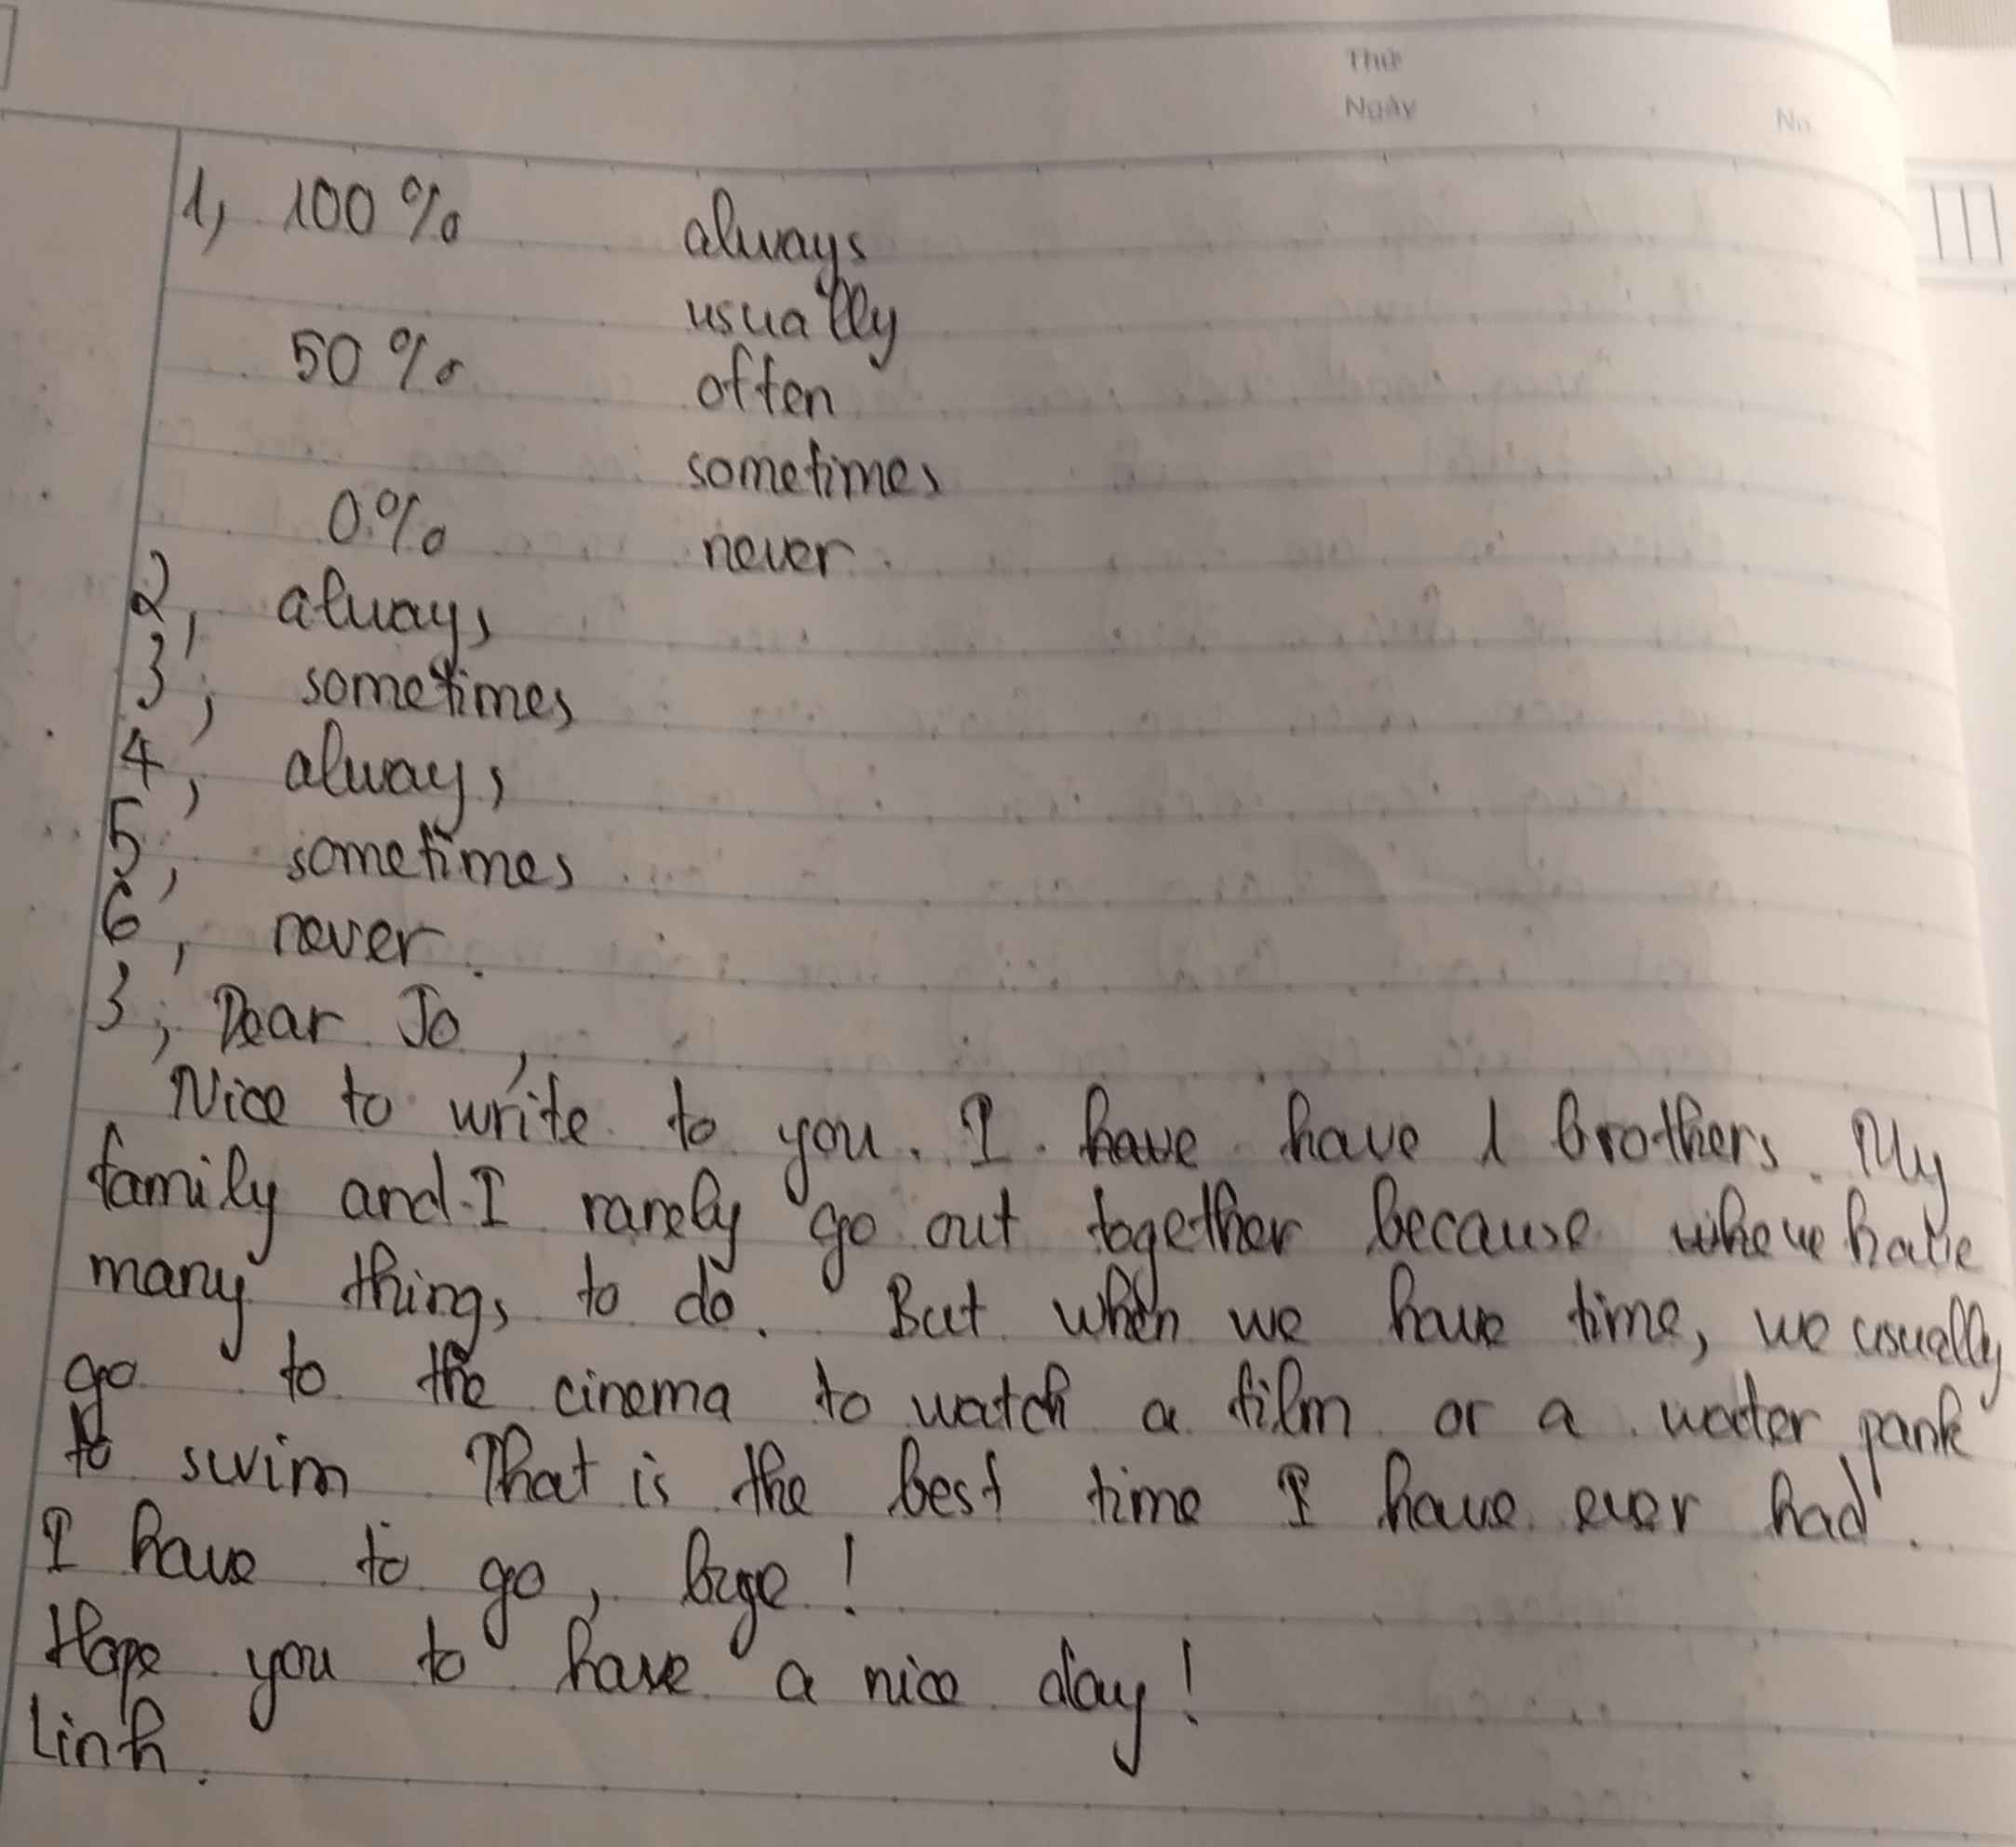 Thứ
Ngày
No.
1, 100% always
usually
50% often
sometimes
0% never
2, always
3, sometimes
4, always
5, sometimes
6, never.
3, Dear Jo,
Nice to write to you. I have have 1 brothers. My
family and I rarely go out together because we have
many things to do. But when we have time, we usually
go to the cinema to watch a film or a water park
to swim. That is the best time I have ever had.
I have to go, bye!
Hope you to have a nice day!
Linh.